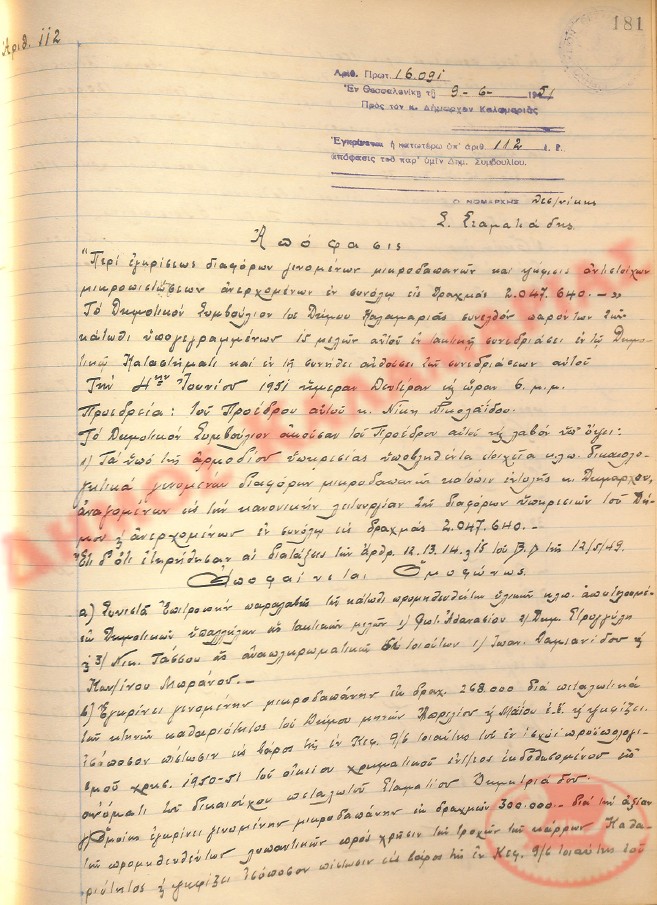 181
Ἀριθ. 112
Αριθ. Πρωτ. 16091
Ἐν Θεσσαλονίκῃ τῇ 9-6-1951
Πρὸς τὸν κ. Δήμαρχον Καλαμαριᾶς
Ἐγκρίνεται ἡ κατωτέρω ὑπ' ἀριθ. 112 ἐ. ἔ.
ἀπόφασις τοῦ παρ' ὑμῖν Δημ. Συμβουλίου.
Ο ΝΟΜΑΡΧΗΣ Θεσ/νίκης
Σ. Σταματιάδης
Ἀπόφασις
"Περὶ ἐγκρίσεως διαφόρων γενομένων μικροδαπανῶν καὶ ψηφίσεως ἀντιστοίχων
μικροπιστώσεων ἀνερχομένων ἐν συνόλῳ εἰς Δραχμάς 2.047.640.-"
Τὸ Δημοτικὸν Συμβούλιον τοῦ Δήμου Καλαμαριᾶς συνελθὸν παρόντων τῶν
κάτωθι ὑπογεγραμμένων 15 μελῶν αὐτοῦ ἐν τακτικῇ συνεδριάσει ἐν τῷ Δημο-
τικῷ Καταστήματι καὶ ἐν τῇ συνήθει αἰθούσῃ τῶν συνεδριάσεων αὐτοῦ
Τὴν 4ην Ἰουνίου 1951 ἡμέραν Δευτέραν ἡ ὥραν 6 μ.μ.
Προεδρεία: τοῦ Προέδρου αὐτοῦ κ. Νίκη Νικολαΐδου.
Τὸ Δημοτικὸν Συμβούλιον ἀκοῦσαν τοῦ Προέδρου αὐτοῦ κ λαβὸν ὑπ' ὄψει:
1) Τὰ ὑπὸ τῆς ἁρμοδίου ὑπηρεσίας ὑποβληθέντα στοιχεῖα κλπ. δικαιολο-
γητικὰ γενομένων διαφόρων μικροδαπανῶν κατόπιν ἐντολῆς κ. Δημάρχου,
ἀναγομένων εἰς τὴν κανονικὴν λειτουργίαν τῶν διαφόρων ὑπηρεσιῶν τοῦ Δή-
μου κ ἀνερχομένων ἐν συνόλῳ εἰς δραχμὰς 2.047.640.-
Ἔτι δ' ὅτι ἐτηρήθησαν αἱ διατάξεις τῶν ἄρθρ. 12.13.14 κ 15 τοῦ Β.Δ τῆς 12/5/49.
Ἀποφαίνεται Ὁμοφώνως.
α) Συνιστᾷ Ἐπιτροπὴν παραλαβῆς τῆς κάτωθι προμηθευθείσης ὑλικῶν κλπ. ἀποτελουμέ-
ἐκ Δημοτικῶν ὑπαλλήλων ὡς τακτικῶν μελῶν 1) Φωτ. Ἀθανασίου 2) Δημ. Στρογγύλη
κ 3) Νικ. Τάσσου ὡς ἀναπληρωματικῶν τοιούτων 1) Ἰωαν. Δαμιανίδου κ
Κων/τίνου Μπράνου.-
β) Ἐγκρίνει γενομένην μικροδαπάνην ἐκ δραχ. 268.000 διὰ πεταλωτικὰ
τῶν κτηνῶν καθαριότητος τοῦ Δήμου μηνῶν Ἀπριλίου κ Μαΐου ἐ.ἔ. κ ψηφίζει
ἰσόποσον πίστωσιν εἰς βάρος τῆς ἐν Κεφ. 9/6 τοιαύτης τοῦ ἐν ἰσχύι προϋπολογι-
σμοῦ χρήσ. 1950-51 τοῦ οἰκείου χρηματικοῦ ἐντ/τος ἐκδοθησομένου ἐπ'
ὀνόματι τοῦ δικαιούχου πεταλωτοῦ Σταματίου Δημητριάδου.
γ) Ὁμοίως ἐγκρίνει γενομένην μικροδαπάνην ἐκ δραχμῶν 300.000.- διὰ τὴν ἀξίαν
τῆς προμηθευθείσης λιπαντικῶν πρὸς χρῆσιν τῶν τροχῶν τῶν κάρρων Καθα-
ριότητος κ ψηφίζει ἰσόποσον πίστωσιν εἰς βάρος τῆς ἐν Κεφ. 9/6 τοιαύτης τοῦ